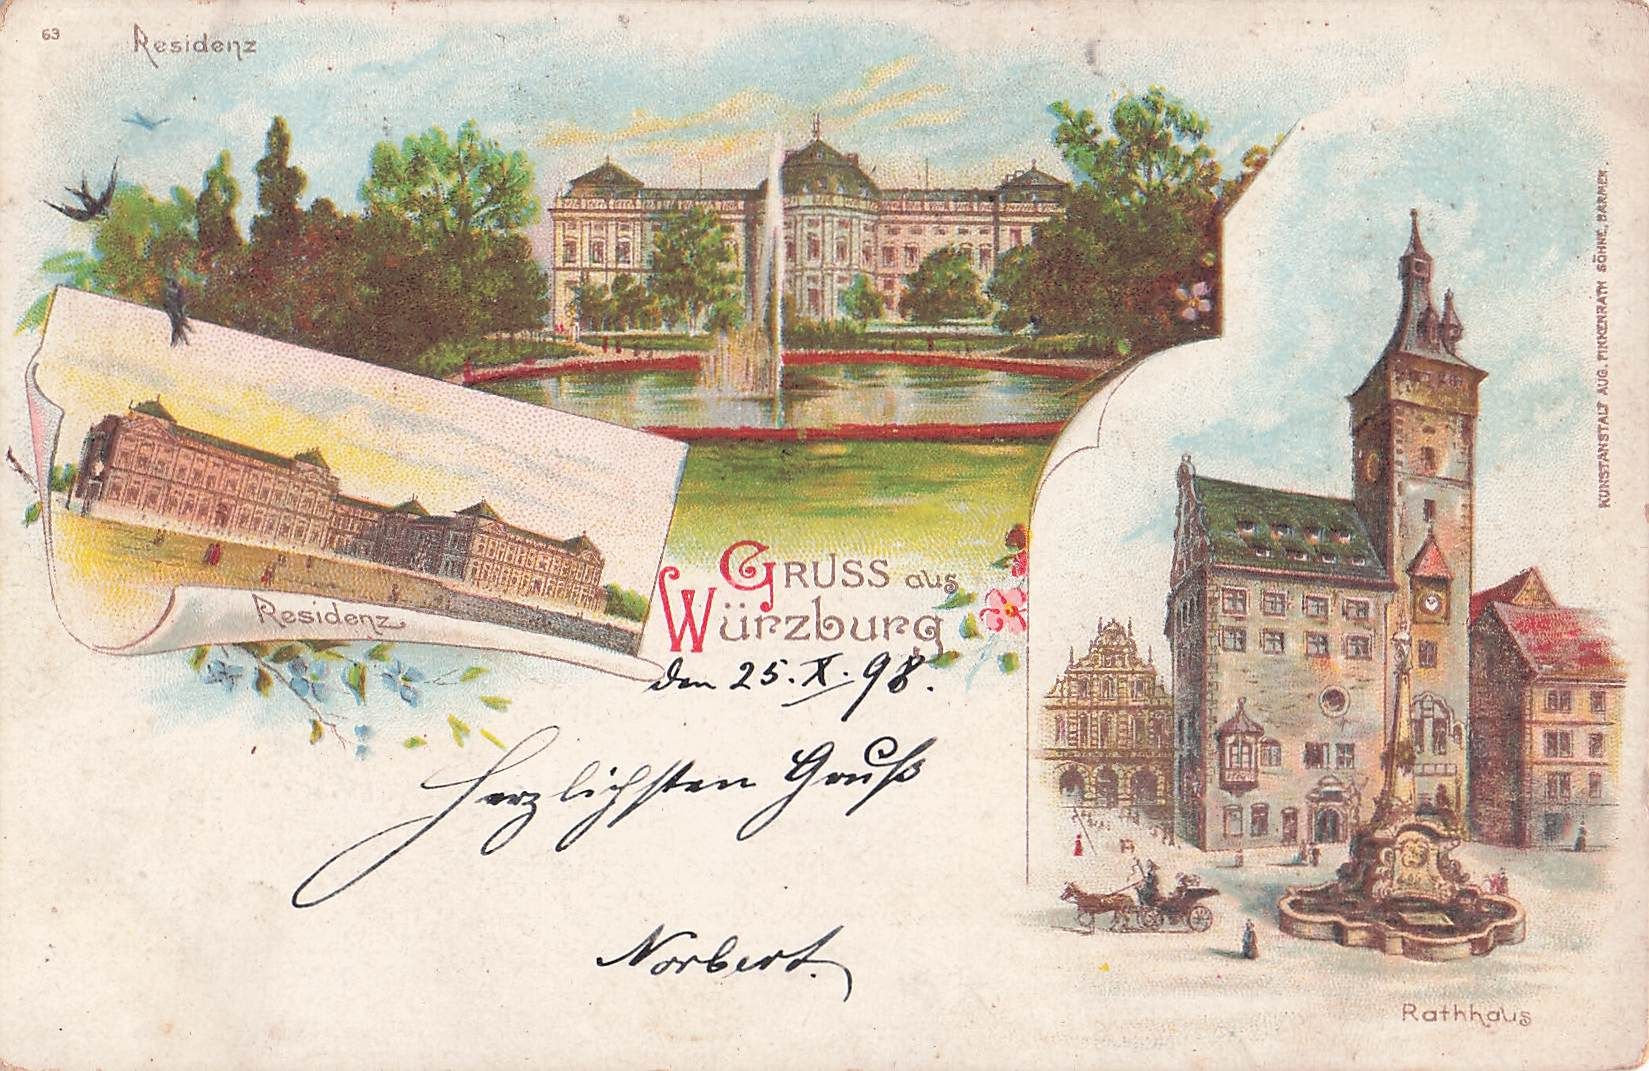 63
Residenz
Residenz
GRUSS aus
Würzburg
den 25. X. 98.
Herzlichsten Gruß
Norbert.
Rathhaus
KUNSTANSTALT AUG. FINKENRATH SÖHNE, BARMEN.